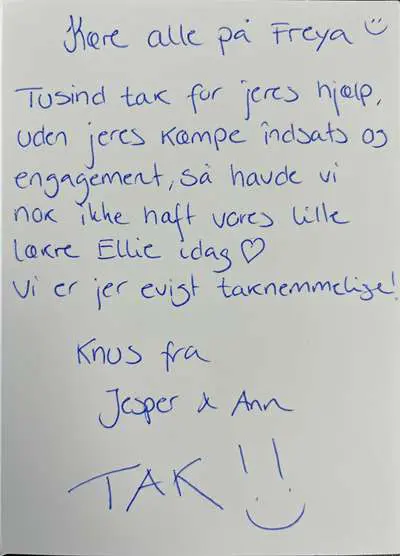 Kære alle på Freya
Tusind tak for jeres hjælp,
uden jeres kæmpe indsats og
engagement, så havde vi
nok ikke haft vores lille
lækre Ellie idag ♡
Vi er jer evigt taknemmelige!
Knus fra
Jesper & Ann
TAK!!